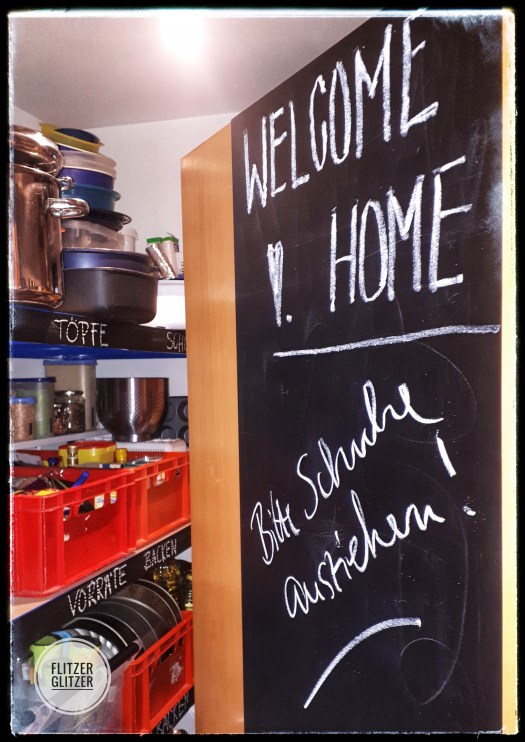 WELCOME
HOME
Bitte Schuhe
ausziehen!
TÖPFE
SCH
VORRÄTE
BACKEN
BACKEN
FLITZER
GLITZER